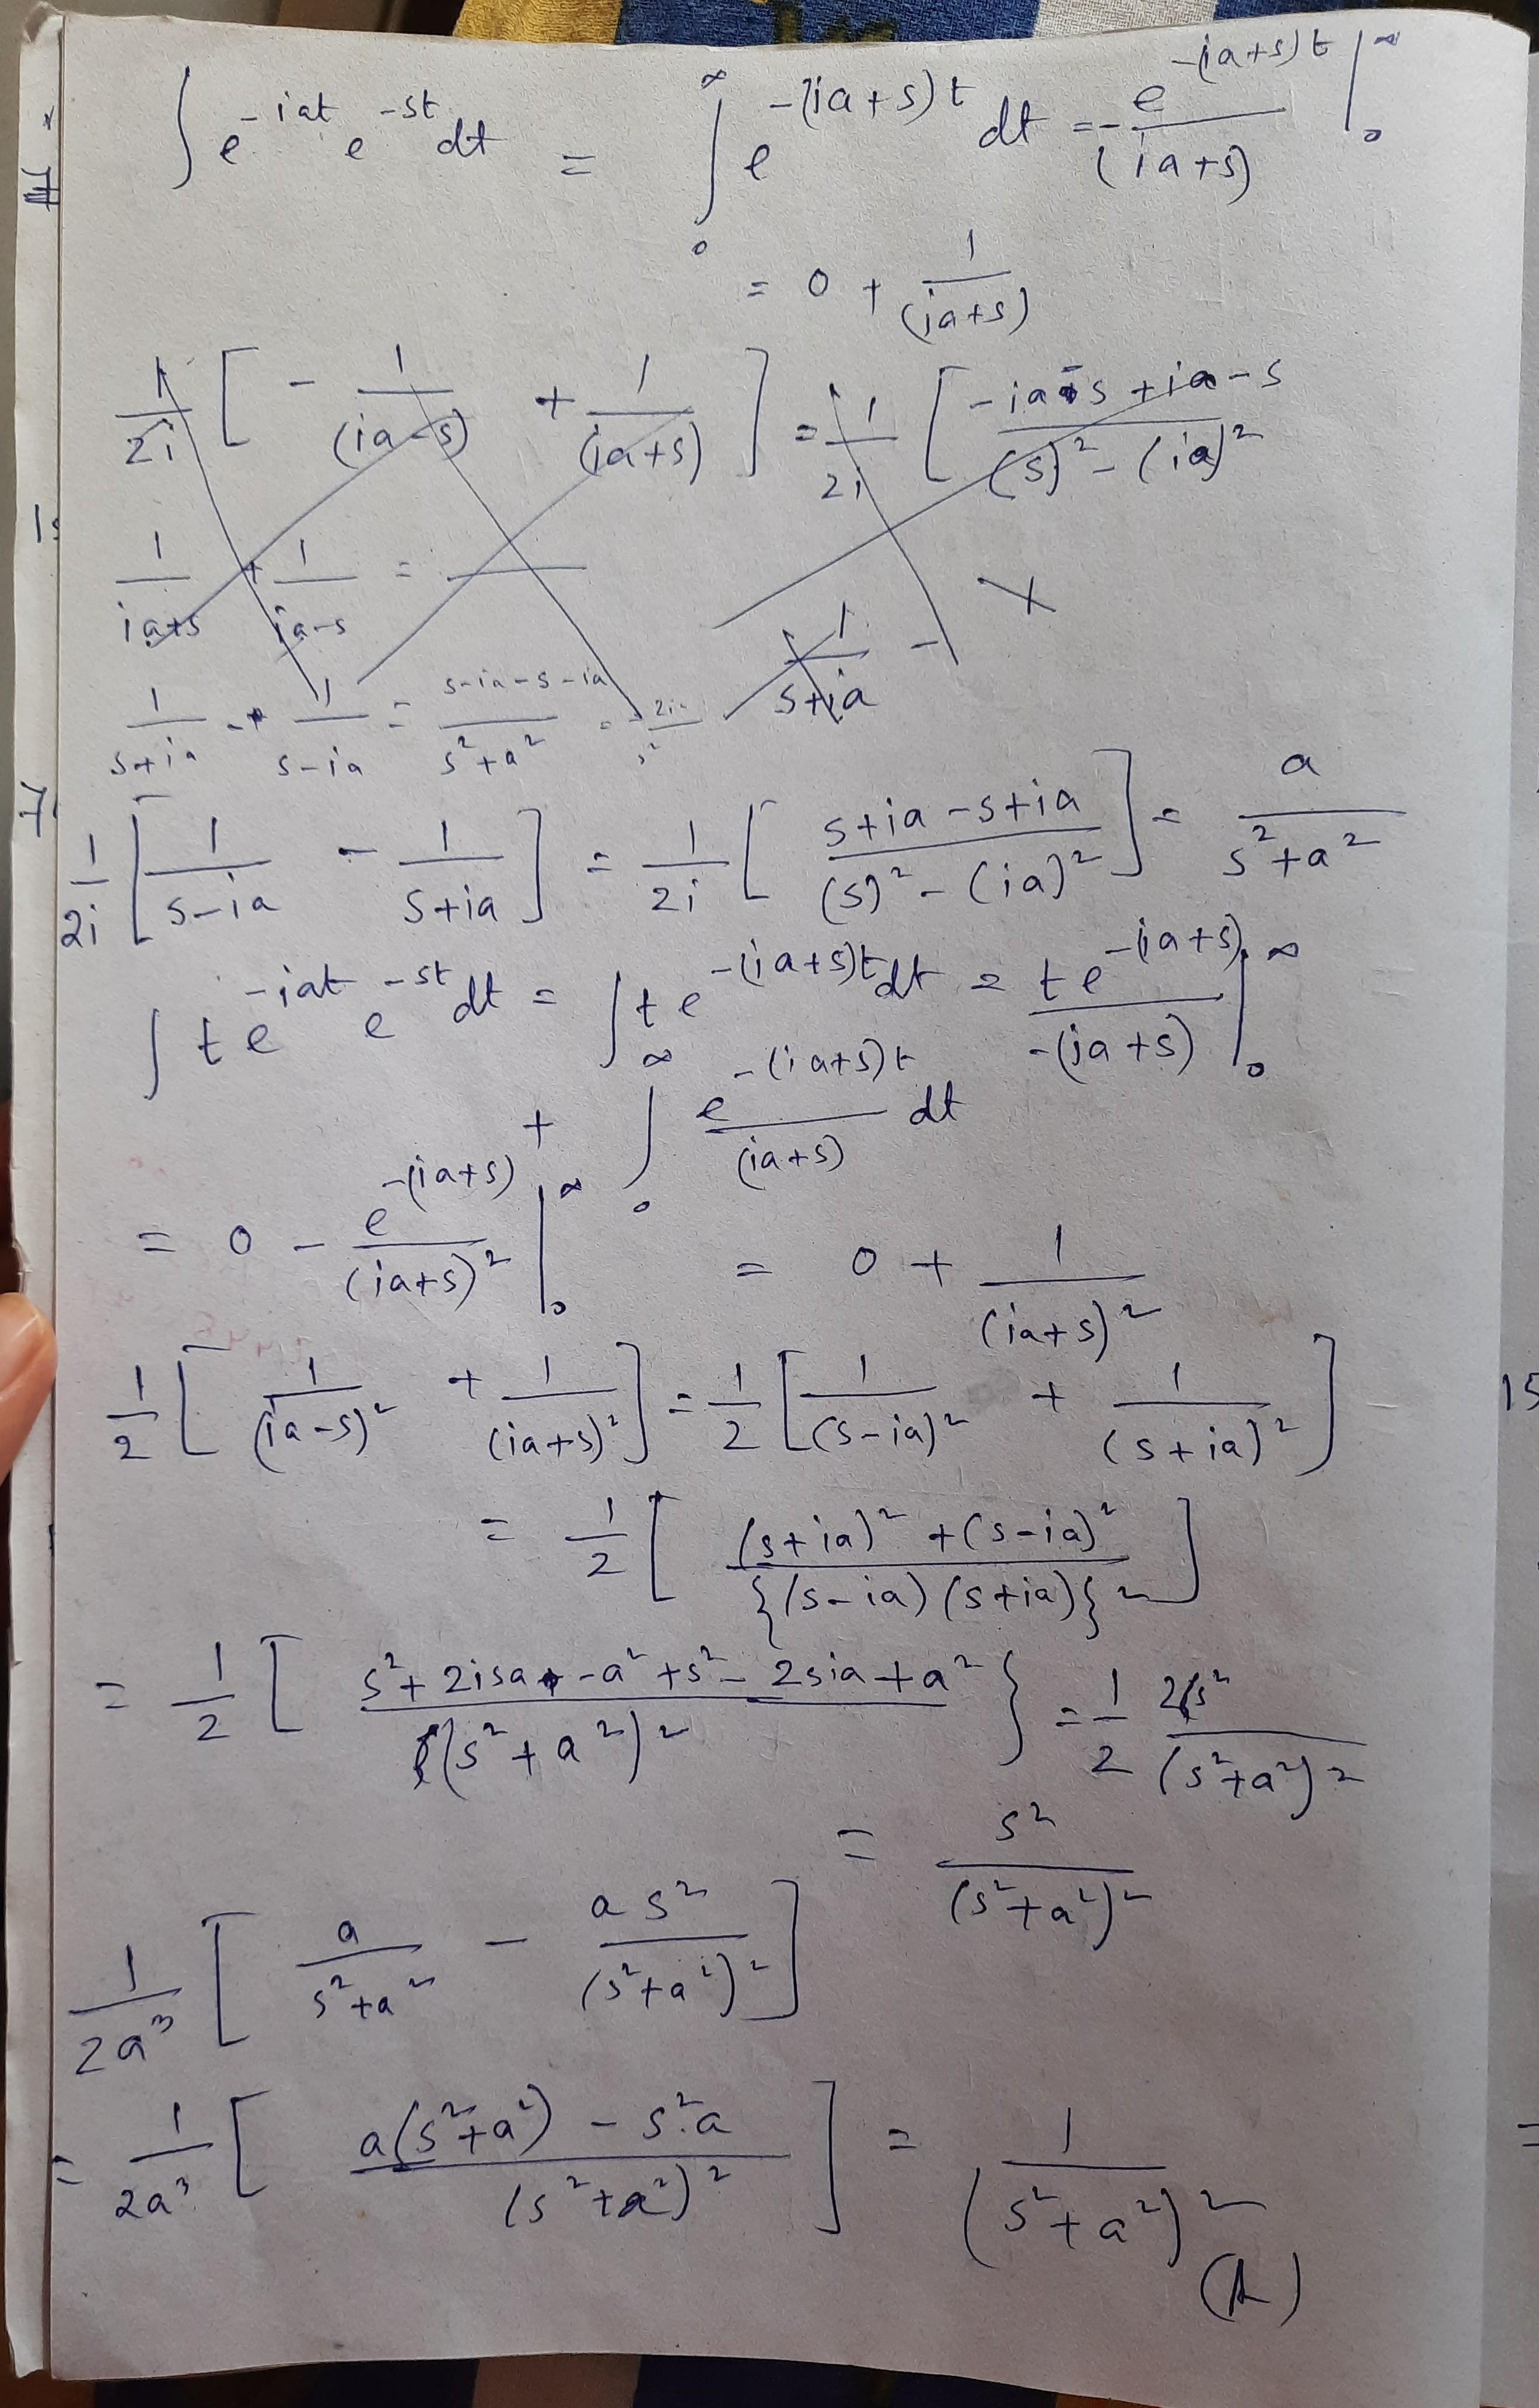 ∫ e^{-iat} e^{-st} dt = ∫_0^∞ e^{-(ia+s)t} dt = - e^{-(ia+s)t} / (ia+s) |_0^∞
= 0 + 1/(ia+s)
1/2i [ - 1/(ia-s) + 1/(ia+s) ] = 1/2i [ (-ia-s+ia-s) / ((s)² - (ia)²) ]
1/(ia+s) + 1/(ia-s) =
1/(s+ia) -
1/(s+ia) - 1/(s-ia) = (s-ia-s-ia)/(s²+a²) =
1/2i [ 1/(s-ia) - 1/(s+ia) ] = 1/2i [ (s+ia-s+ia) / ((s)² - (ia)²) ] = a/(s²+a²)
∫ t e^{-iat} e^{-st} dt = ∫ t e^{-(ia+s)t} dt = t e^{-(ia+s)} / -(ia+s) |_0^∞
+ ∫_0^∞ e^{-(ia+s)t} / (ia+s) dt
= 0 - e^{-(ia+s)} / (ia+s)² |_0^∞ = 0 + 1/(ia+s)²
1/2 [ 1/(ia-s)² + 1/(ia+s)² ] = 1/2 [ 1/(s-ia)² + 1/(s+ia)² ]
= 1/2 [ ((s+ia)² + (s-ia)²) / {(s-ia)(s+ia)}² ]
= 1/2 [ (s²+2isa-a²+s²-2sia+a²) / (s²+a²)² } = 1/2 2s²/(s²+a²)²
= s²/(s²+a²)²
1/2a³ [ a/(s²+a²) - as²/(s²+a²)² ]
= 1/2a³ [ (a(s²+a²) - s².a) / (s²+a²)² ] = 1/(s²+a²)²
(A)
15